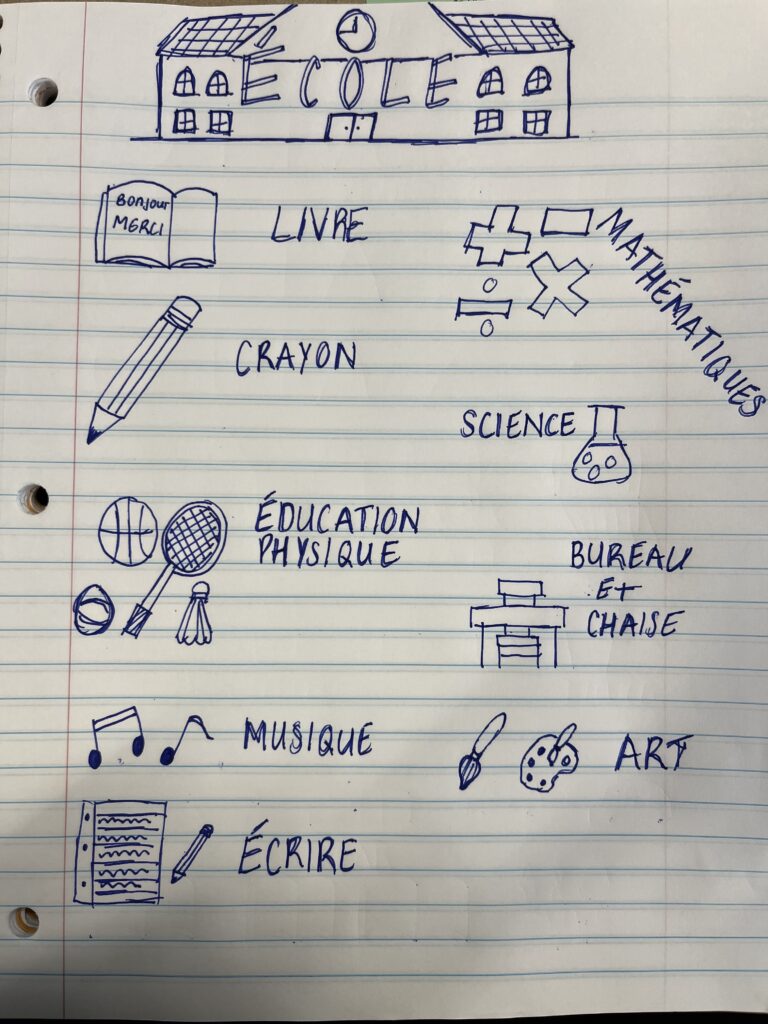 ÉCOLE
BONJOUR
MERCI
LIVRE
MATHÉMATIQUES
CRAYON
SCIENCE
ÉDUCATION
PHYSIQUE
BUREAU
ET
CHAISE
MUSIQUE
ART
ÉCRIRE